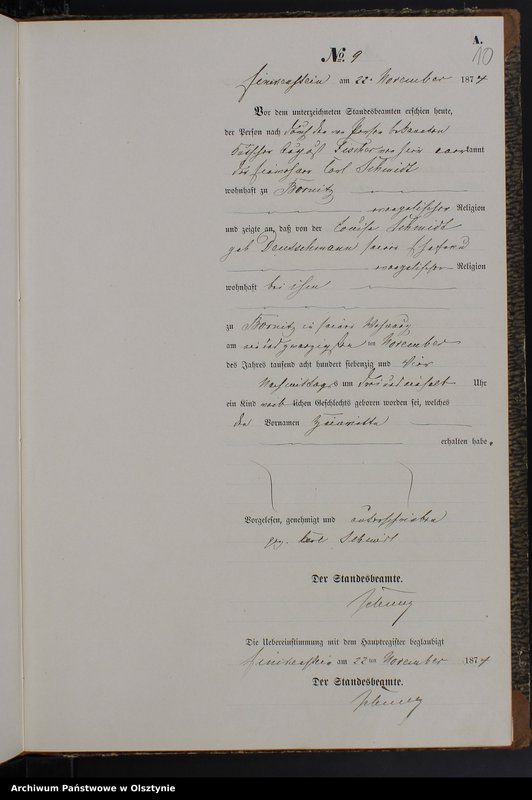 A.
10
No. 9
Finckenstein am 22. November 1874
Vor dem unterzeichneten Standesbeamten erschien heute,
der Person nach durch den von Person bekannten
August Fischer kannt
der Carl Schmidt
wohnhaft zu Bornitz
evangelischer Religion
und zeigte an, daß von der Louise Schmidt
geb Deutschmann seiner Ehefrau
evangelischer Religion
wohnhaft bei ihm
zu Bornitz in seiner Wohnung
am ein und zwanzigsten ten November
des Jahres tausend acht hundert siebenzig und vier
Nachmittags um drei und einhalb Uhr
ein Kind weiblichen Geschlechts geboren worden sei, welches
den Vornamen Henriette
erhalten habe.
Vorgelesen, genehmigt und unterschrieben
gez. Carl Schmidt
Der Standesbeamte.
Die Uebereinstimmung mit dem Hauptregister beglaubigt
Finckenstein am 22 ten November 1874
Der Standesbeamte.
Archiwum Państwowe w Olsztynie